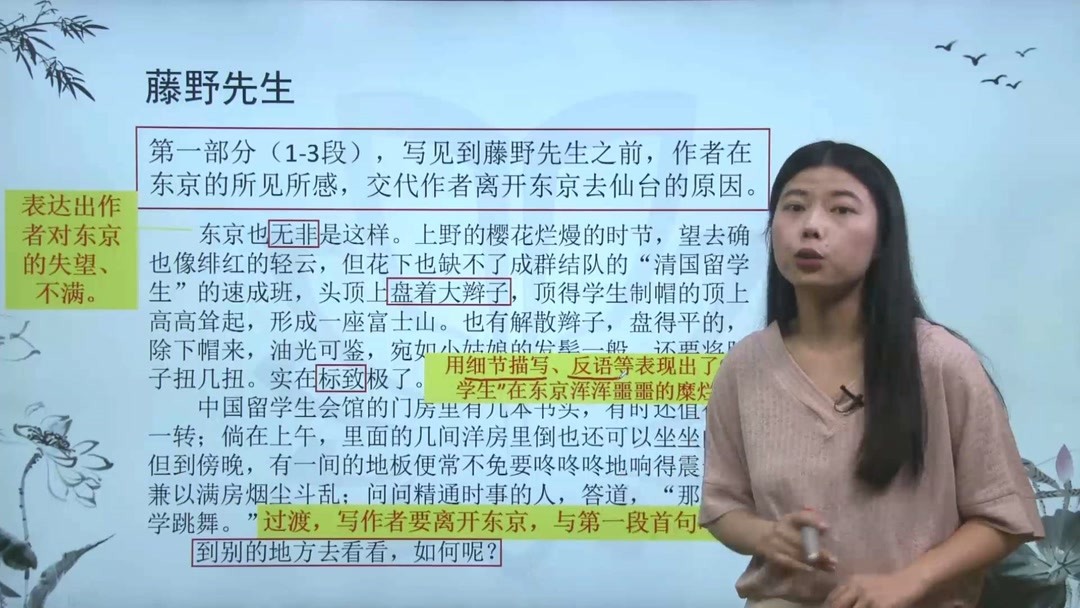 藤野先生
第一部分（1-3段），写见到藤野先生之前，作者在
东京的所见所感，交代作者离开东京去仙台的原因。
表达出作
者对东京
的失望、
不满。
东京也无非是这样。上野的樱花烂熳的时节，望去确
也像绯红的轻云，但花下也缺不了成群结队的“清国留学
生”的速成班，头顶上盘着大辫子，顶得学生制帽的顶上
高高耸起，形成一座富士山。也有解散辫子，盘得平的，
除下帽来，油光可鉴，宛如小姑娘的发髻一般，还要将
子扭几扭。实在标致极了。
用细节描写、反语等表现出了
学生”在东京浑浑噩噩的糜烂
中国留学生会馆的门房里有几本书买，有时还值
一转；倘在上午，里面的几间洋房里倒也还可以坐坐
但到傍晚，有一间的地板便常不免要咚咚咚地响得震
兼以满房烟尘斗乱；问问精通时事的人，答道，“那
学跳舞。”
过渡，写作者要离开东京，与第一段首句
到别的地方去看看，如何呢？